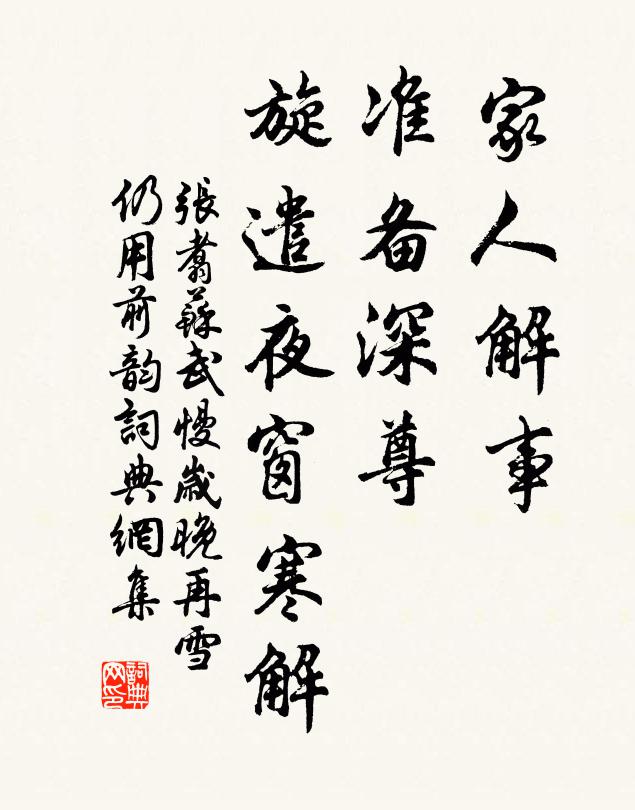 家人解事
准备深尊
旋遣夜窗寒解
張翥蘇武慢歲晚再雪
仍用前韵詞典網集
詞典网印